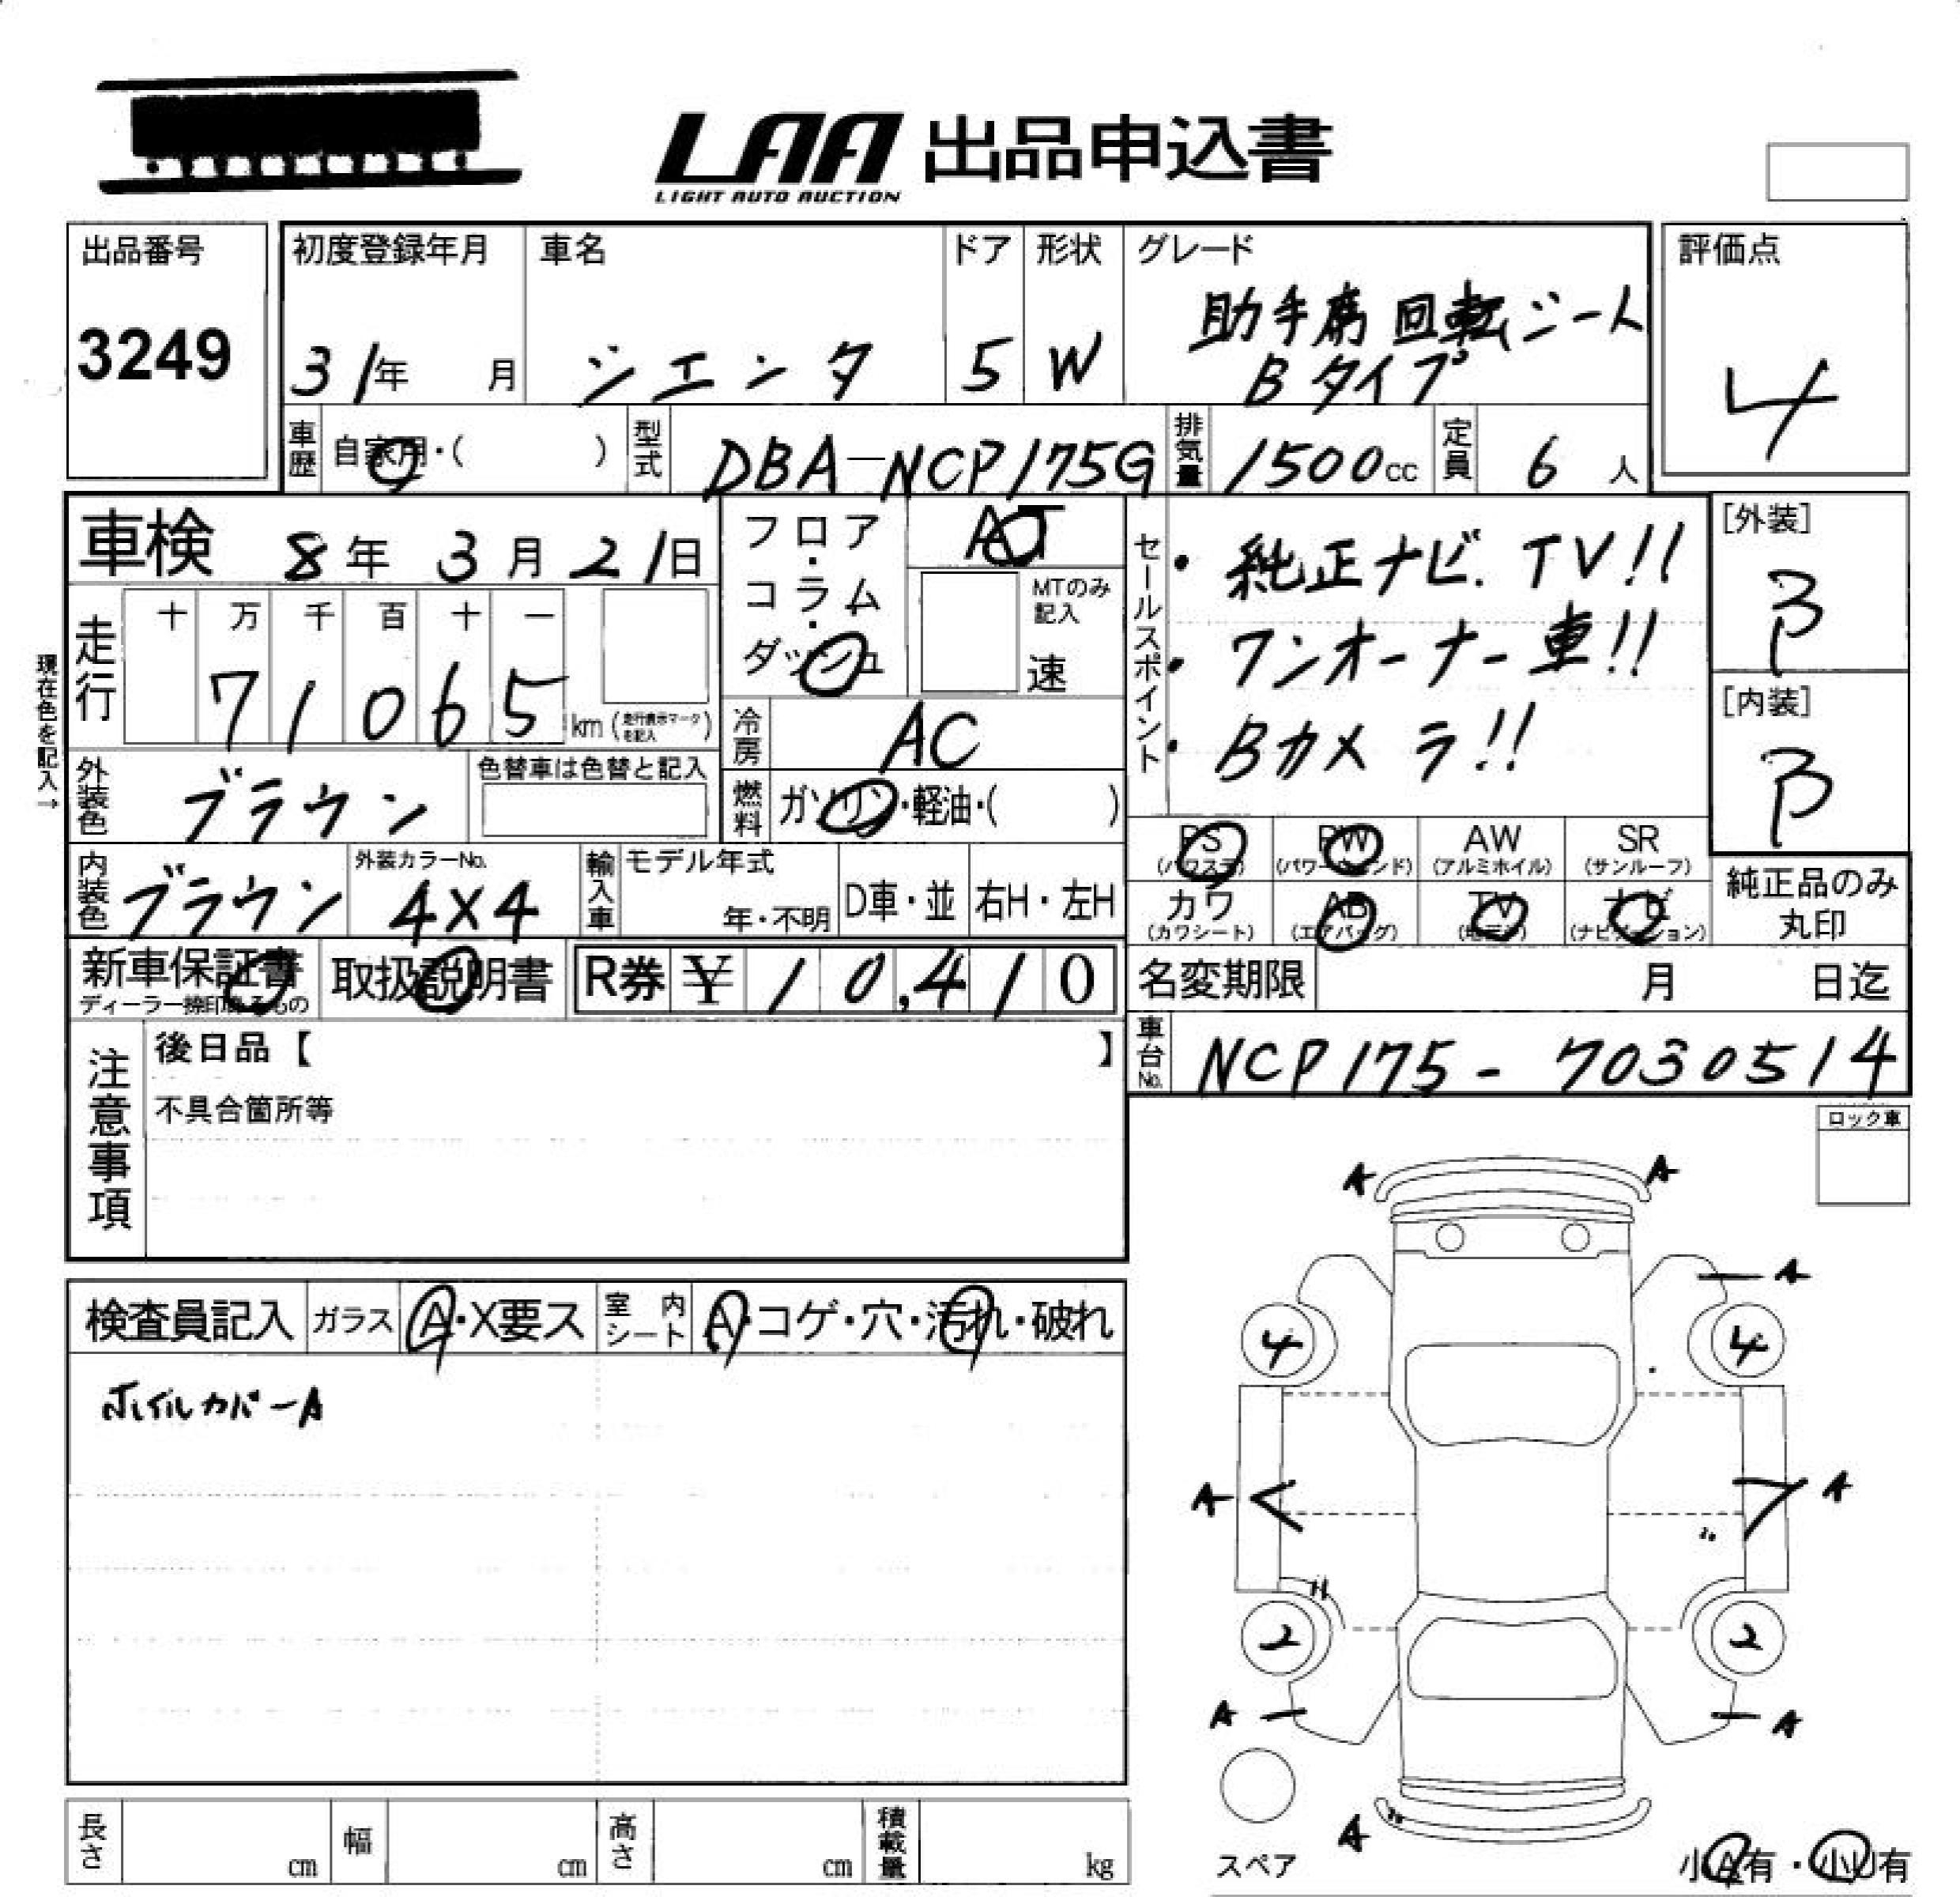 LAA 出品申込書
LIGHT AUTO AUCTION
出品番号
3249
初度登録年月
31年 月
車名
シエンタ
ドア
5
形状
W
グレード
助手席回転シート
Bタイプ
評価点
4
車歴 自家用・( )
型式 DBA-NCP175G
排気量 1500cc
定員 6人
車検 8年 3月 21日
現在色を記入→
走行
十 万 千 百 十 一
7 1 0 6 5 km (走行表示マークを記入)
フロア・コラム・ダッシュ
AT
MTのみ記入
速
冷房 AC
燃料 ガソリン・軽油・( )
外装色 ブラウン
色替車は色替と記入
内装色 ブラウン
外装カラーNo.
4X4
輸入車
モデル年式
年・不明
D車・並
右H・左H
セールスポイント
・純正ナビ.TV!!
・ワンオーナー車!!
・Bカメラ!!
[外装]
B
[内装]
B
PS (パワステ)
PW (パワーウィンド)
AW (アルミホイル)
SR (サンルーフ)
カワ (カワシート)
AB (エアバッグ)
TV (地デジ)
ナビ (ナビゲーション)
純正品のみ
丸印
新車保証書
ディーラー捺印あるもの
取扱説明書
R券 ¥10,410
名変期限 月 日迄
車台No. NCP175-7030514
注意事項
後日品【 】
不具合箇所等
ロック車
検査員記入
ガラス A・X要ス
室内シート A・コゲ・穴・汚れ・破れ
ホイルカバーA
A A
A
4 4
A A
2 2
A A
A
スペア
小A有・小U有
長さ cm
幅 cm
高さ cm
積載量 kg